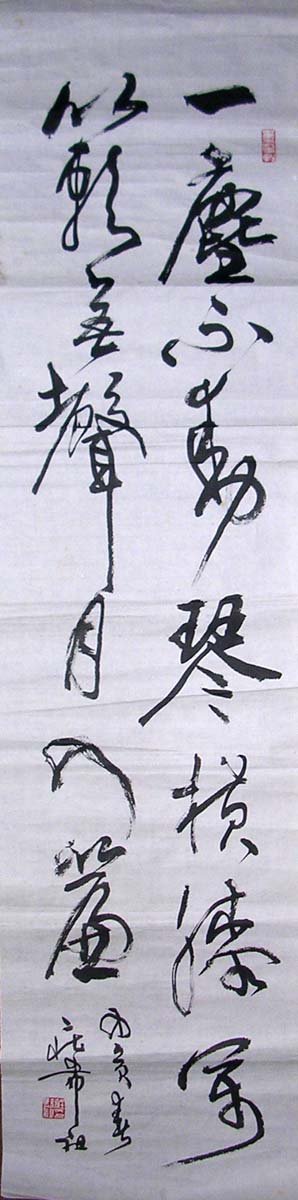 一塵不動琴橫膝萬
籟無聲月入簾
春
莊希祖